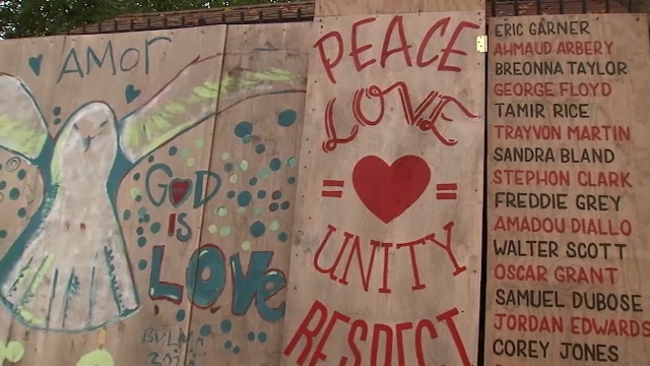 AMOR
GOD
iS
LOVE
PEACE
LOVE
= =
UNITY
RESPECT
ERIC GARNER
AHMAUD ARBERY
BREONNA TAYLOR
GEORGE FLOYD
TAMIR RICE
TRAYVON MARTIN
SANDRA BLAND
STEPHON CLARK
FREDDIE GREY
AMADOU DIALLO
WALTER SCOTT
OSCAR GRANT
SAMUEL DUBOSE
JORDAN EDWARDS
COREY JONES